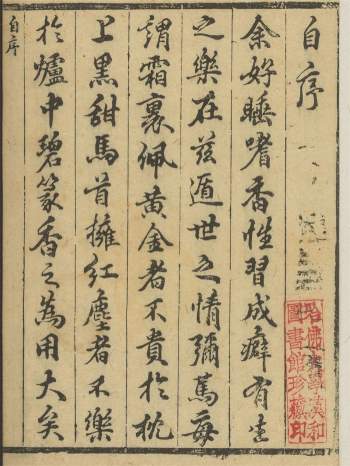 自序
余好睡嗜香性習成癖有生
之樂在茲遁世之情彌篤每
謂霜裏佩黃金者不貴於枕
上黑甜馬首擁紅塵者不樂
於爐中碧篆香之為用大矣
自序
哈佛大學漢和
圖書館珍藏印